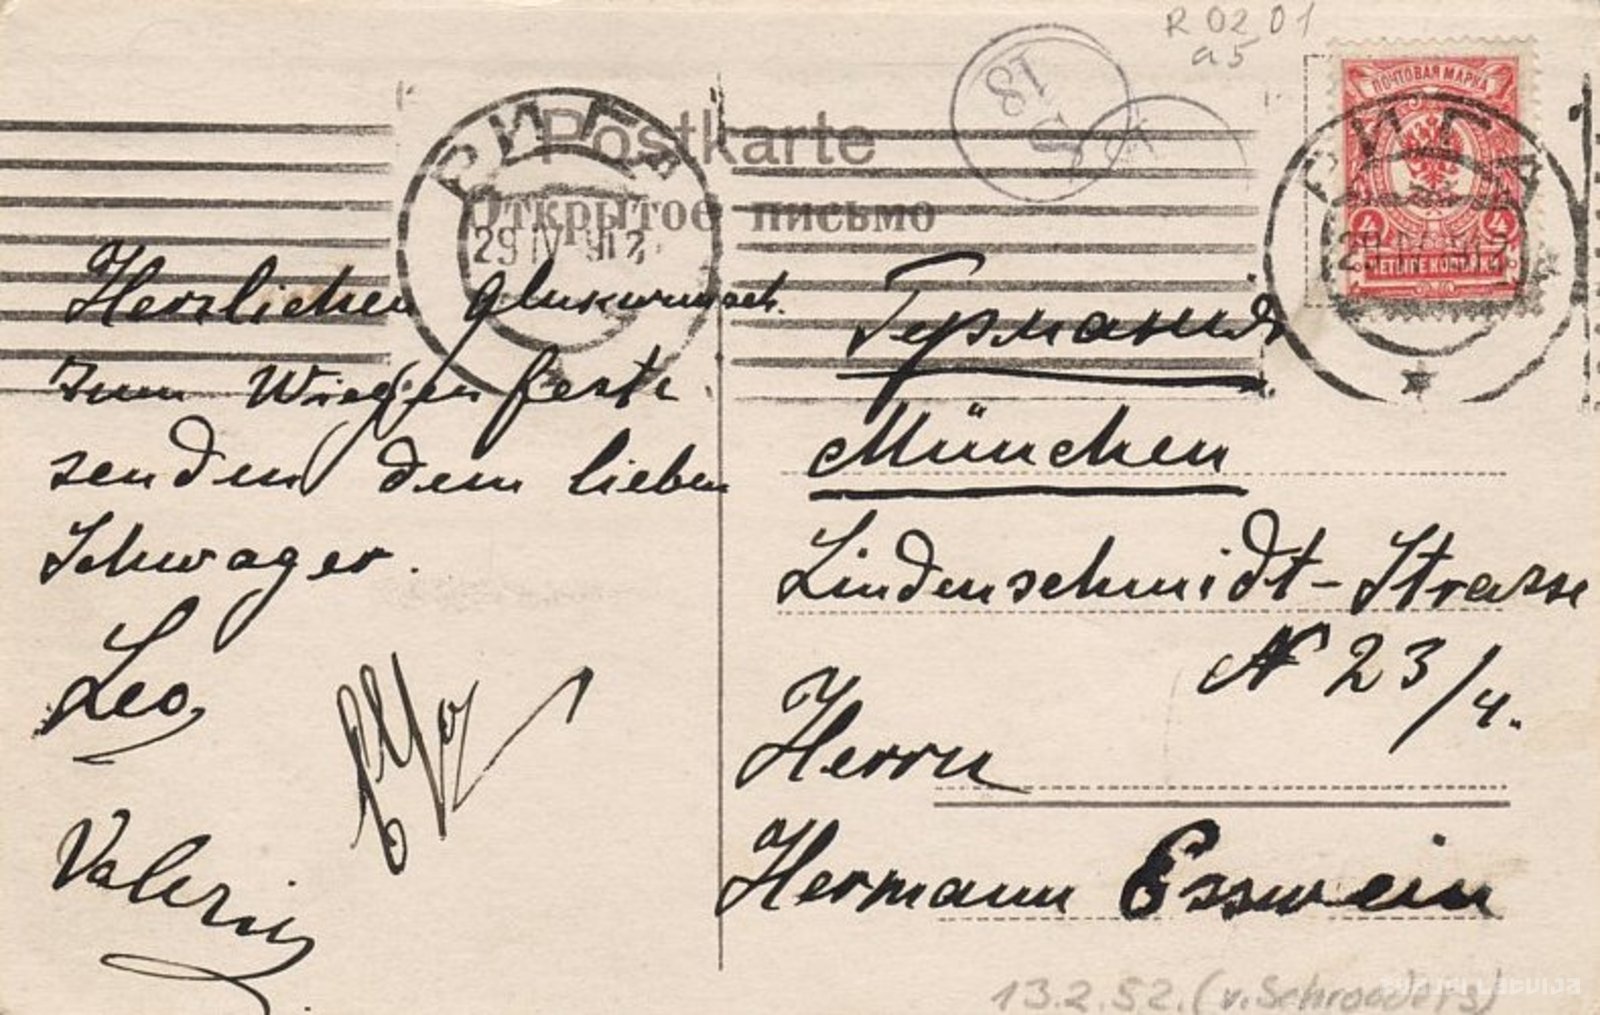 R 02 01
a5
Postkarte
Открытое письмо
РИГА
29 IV 912
18
5
ПОЧТОВАЯ МАРКА
РИГА
4 4
ЧЕТЫРЕ КОПѢЙКИ
Herzlichen Glukwunsch.
zum Wiegenfeste
senden dem lieben
Schwager.
Leo,
Valerie
Германія
München
Lindenschmidt-Strasse
N 23/4.
Herrn
Hermann Esswein
13.2.52. (v. Schrooders)
zudusi Latvija